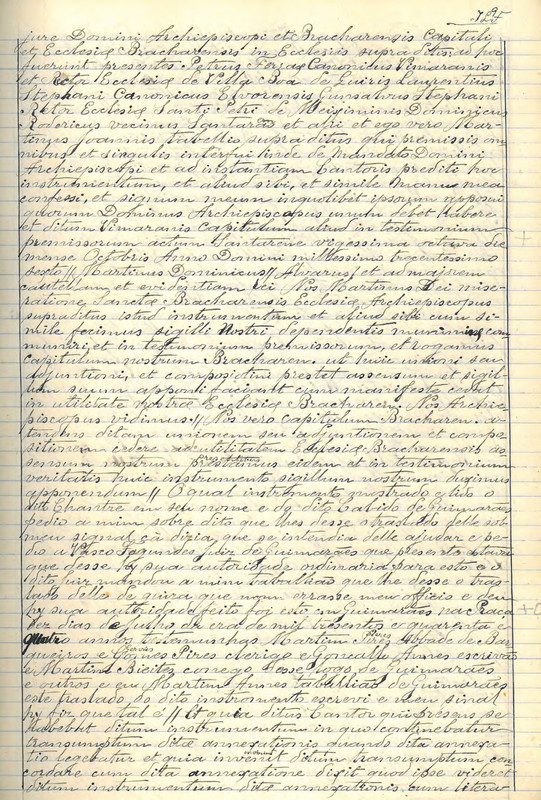 125
jure Domini Archiepiscopi et Bracharensis Capituli
et Ecclesiæ Bracharensis in Ecclesiis supra ditis: ad hoc
fuerunt presentes Petrus Canonicus Vimaranis
et Rector Ecclesiæ de Villa Boa de Quiris Laurentius
Stephani Canonicus Elvorensis Gunsalvus Stephani
Retor Ecclesiæ Santi Petri de Dominicus
Rodericus vecinus Santarēs et alii et ego vero Mar-
tinus Joannis tabellis supraditus qui premissis om
nibus et singulis interfui hinde de mandato Domini
Archiepiscopi et ad instantiam Cantoris prediti hoc
instrumentum, et aliud sivi, et simile manu mea
confessi, et signum meum inquotibet ipsorum apposui
quorum Dominus Archiepiscopus unum debet habere
et ditum Vimaranis Capitulum aliud in testimonium
premissorum actum Santarene vigessima octava die
mense Octobris Anno Domini millessimo trecentessimo
sexto // Martinus Dominicus // Alvarus / et ad majorem
cautelam, et evidentiam rei Nos Martinus Dei mise-
ratione Sanctæ Bracharensis Ecclesiæ Archiepiscopus
supraditus istud instrumentum et aliud sibi cum si-
mile fecimus sigilli nostri dependentis munimine com
muniri, et in testimonium premissorum, et rogamus
capitulum nostrum Bracharen. ut huic unioni seu
adjuntioni, et compositioni prestet assensum et sigil-
lum suum apponi faciant cum manifeste cedat
in utilitate nostræ Ecclesiæ Bracharen. Nos Archie-
piscopus vidimus // Nos vero Capitulum Bracharen. a-
tendens ditam unionem seu adjuntionem et compo-
sitionem cedere ad utilitatem Ecclesiæ Bracharensis as
sensum nostrum prestamus eidem et in testimonium
veritatis huic instrumento sigillum nostrum duximus
apponendum // O qual instromento mostrado e lido o
dito Chantre em seu nome e do dito Cabido de Guimarães
pedio a mim sobre dito que lhes desse o traslado delle sob
meu signal cā dizia que se intendia delle ajudar e pe-
dio a Vasco Fagundes juiz de Guimarães que presente
que desse hy sua autoridade ordinaria para esto e o
dito juiz mandou a mim taballião que lhe desse o tras-
lado dello de guiza que nom errasse meu officio e deu
hy sua autoridade feito foi esto em Guimarães na Praça
dez dias de Julho da era de mil tresentos e quarenta e
quatro annos testemunhas Martim Pires Abbade de Bar
queiros e Pires clerigo e Goncallo Annes escrivão
e Martim Bieitez conego desse logo de Guimarães
e outros, e eu Martim Annes taballião de Guimarães
este traslado do dito instromento escrevi e meu sinal
hy fiz que tal é // Et quia ditus Cantor qui presens se
habebat ditum instrumentum in quo continebatur
transumptum ditæ annexationis quando dita annexa-
tio legebatur et quia invenit ditum transumptum con
cordare cum dita annexatione dixit quod ipse videret
ditum instrumentum ditæ annexationis cum litera